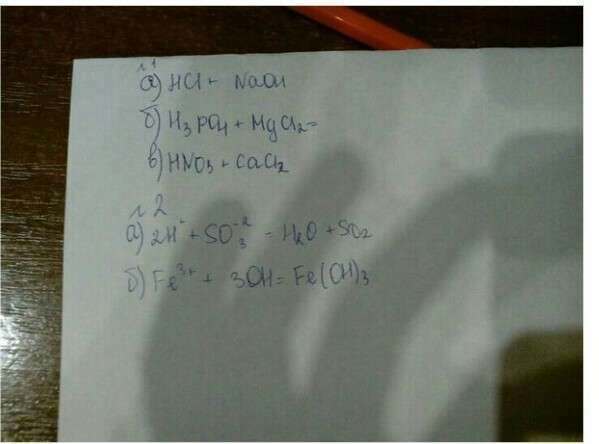 №1
а) HCl + NaOH
б) H₃PO₄ + MgCl₂=
в) HNO₃ + CaCl₂
№2
а) 2H⁺ + SO₃⁻² = H₂O + SO₂
б) Fe³⁺ + 3OH = Fe(OH)₃